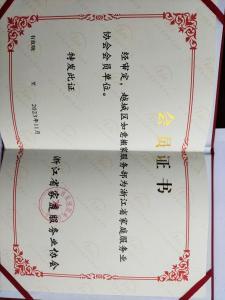 会员证书
经审定，越城区如意搬家服务部为浙江省家庭服务业
协会会员单位。
特发此证
有效期：
至
2023年11月
浙江省家庭服务业协会